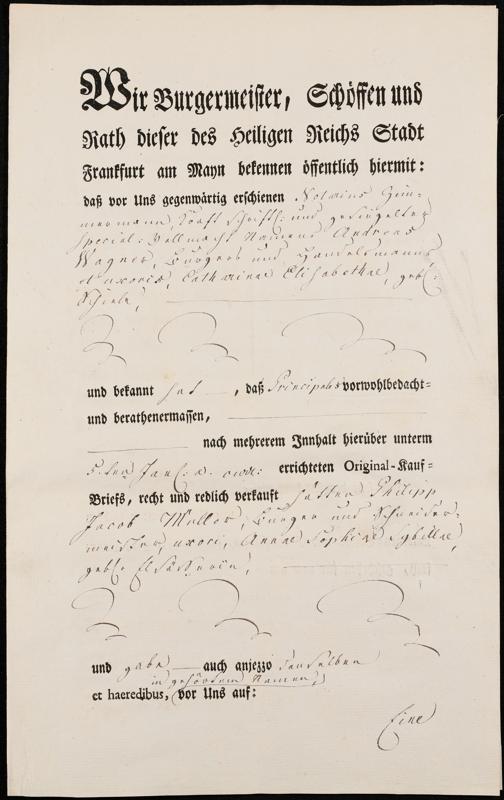 Wir Burgermeister, Schöffen und
Rath dieser des Heiligen Reichs Stadt
Frankfurt am Mayn bekennen öffentlich hiermit:
daß vor Uns gegenwärtig erschienen Notarius
Krafft schrifft: und gesiegelter
special: Vollmacht Namens Andreas
Wagner, Bürgers und Handelsmanns
et uxoris, Catharinae Elisabethae, gebl:
und bekannt hat, daß Principales vorwohlbedacht-
und berathenermassen,
nach mehrerem Innhalt hierüber unterm
5.ten errichteten Original-Kauf-
Briefs, recht und redlich verkauft hätten Philipp
Jacob Müller, Bürger und Schneider-
meister, uxori, Annae Sophiae Sybillae,
gebl:
und gabe auch anjezzo denselben
in gehörtem Namen,
et haeredibus, vor Uns auf:
Eine